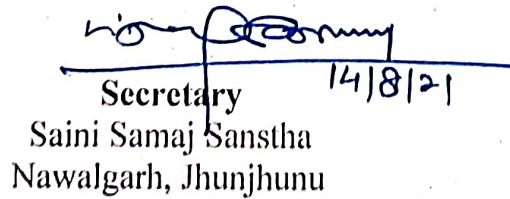 14/8/21
Secretary
Saini Samaj Sanstha
Nawalgarh, Jhunjhunu